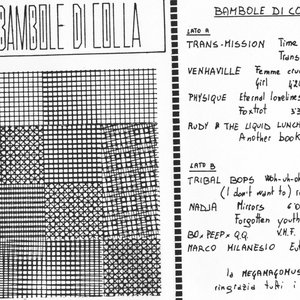 BAMBOLE DI COLLA
BAMBOLE DI CO
LATO A
TRANS-MISSION Time
Trans
VENHAVILLE Femme
Girl
PHYSIQUE Eternal loveliness
Foxtrot
RUDY & THE LIQUID LUNCH
Another book
LATO B
TRIBAL BOPS
(I don't want to)
NADJA Mirrors
Forgotten youth
BO x PEEP x Q.Q. V.M.F.
MARCO MILANESIO
la MEGAMAGOMUS
ringrazia tutti i